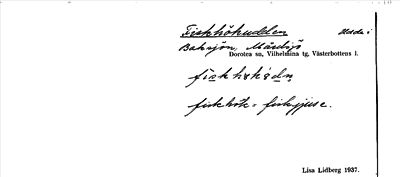 Fiskhökudden Udde i
Baksjön, Mårdsjö
Dorotea sn, Vilhelmina tg, Västerbottens l.
fiskhök = fiskgjuse.
Lisa Lidberg 1937.